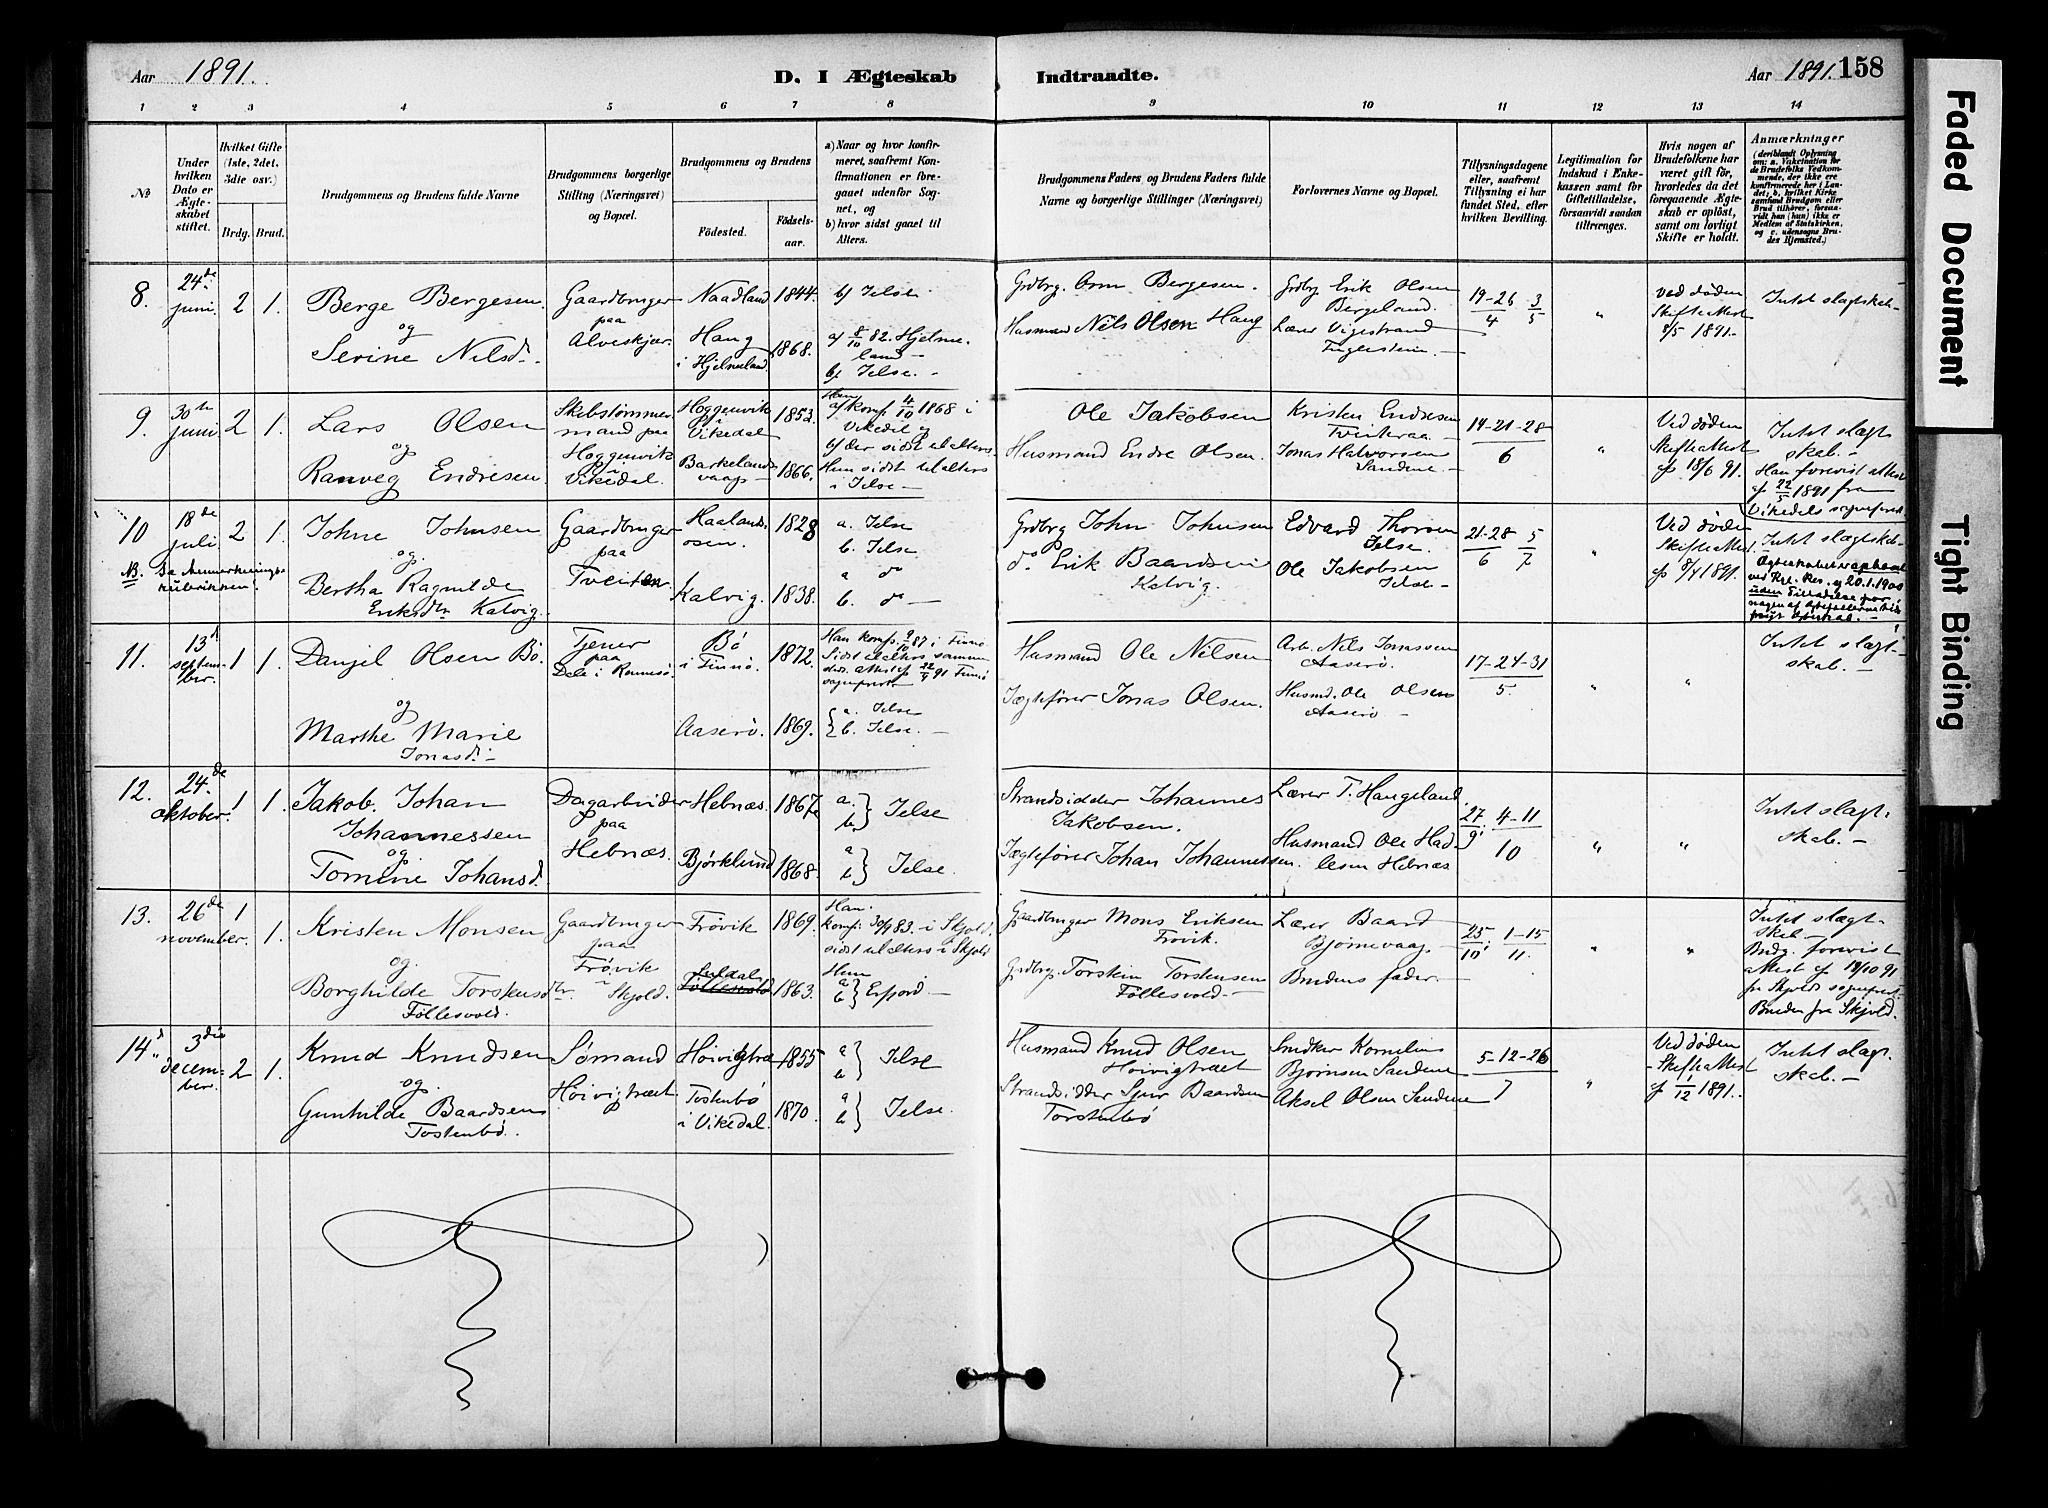 Aar 1891.
D. I Ægteskab Indtraadte.
Aar 1891. 158
1 2 3 4 5 6 7 8 9 10 11 12 13 14
№
Under hvilken Dato er Ægteskabet stiftet.
Hvilket Gifte (1ste, 2det, 3die osv.)
Brdg. Brud.
Brudgommens og Brudens fulde Navne
Brudgommens borgerlige Stilling (Næringsvei) og Bopæl.
Brudgommens og Brudens
Födested. Födselsaar.
a) Naar og hvor konfirmeret, saafremt Konfirmationen er foregaaet udenfor Sognet, og
b) hvor sidst gaael til Alters.
Brudgommens Faders og Brudens Faders fulde Navne og borgerlige Stillinger (Næringsvei)
Forlovernes Navne og Bopæl.
Tillysningsdagene eller, saafremt Tillysning ei har fundet Sted, efter hvilken Bevilling.
Legitimation for Indskud i Enkekassen samt for Giftetilladelse, forsaavidt saadan tiltrænges.
Hvis nogen af Brudefolkene har været gift før, hvorledes da det foregaaende Ægteskab er opløst, samt om lovligt Skifte er holdt.
Anmærkninger
8. 24de juni 2 1.
Berge Bergesen
og
Serine Nilsd.
Gaardbruger paa Alveskjær
Naadland 1844.
Haug i Hjelmeland 1868.
b/ Jelse
a/ 8/10 82. Hjelmeland
b/ Jelse.
Grdbrg. Orm Bergesen.
Husmand Nils Olsen Haug
Grdbrg Erik Olsen Bergeland.
Lærer Vigestrand
19-26/4 3/5
"
Ved døden Skifteattest 8/5 1891.
Intet slagtskab
9. 30te juni 2 1.
Lars Olsen
og
Ranveg Endresen
mand paa Hoggenvik i Vikedal.
Hoggenvik Vikedal 1853.
Barkelandsvaag 1866.
Han a/ konf. 4/10 1868 i Vikedal og
b/ der sidst til alters.
Hun sidst til alters i Jelse
Ole Jakobsen
Husmand Endre Olsen.
Kristen Endresen
Jonas Halvorsen Sandene
14-21-28/6
"
Ved døden Skifteattest af 18/6 91.
Intet slagtskab.
Han forevist attest af 22/5 1891 fra Vikedals sogneprest.
10 18de juli 2 1.
NB. Se Anmerkningsrubrikken!
Johne Johnsen
og
Bertha Ragnilde Eriksdtr Kalvig.
Gaardbruger paa Tveiten
Haalandsosen. 1828
Kalvig. 1838.
a. Jelse
b. Jelse
a do
b. do
Grdbrg John Johnsen
do. Erik Baardsen Kalvig.
Edvard Thorsen Jelse.
Ole Jakobsen Jelse
21-28/6 5/7
"
Ved døden Skifteattest af 8/4 1891.
Intet slagtskab.
Ægteskabet ophævet ved Kgl. Res. af 20.1.1900 uden Tilladelse for nogen af
11. 13de september 1 1.
Danjel Olsen Bø.
og
Marthe Marie Jonasd.
Tjener paa Dale i
Bø i Finnø 1872.
Aaserø. 1869.
Han konf. 2/10 87 i Finnø
a. Jelse
b. Jelse
Husmand Ole Nilsen
Jægtefører Jonas Olsen.
Arb. Nils Jonassen Aaserø.
Husmd. Ole Olsen Aaserø
17-24-31/5.
" "
Intet slægtskab.
12. 24de oktober 1 1.
Jakob Johan Johannessen
og
Tomine Johansd.
Dagarbeider paa Hebnæs.
Hebnæs. 1867
Bjørklund 1868.
a. b. } Jelse
a b } Jelse.
Strandsidder Johannes Jakobsen.
Jægtefører Johan Johannessen.
Lærer T. Haugeland.
Husmand Ole Hadlesen Hebnæs
27/9. 4-11/10
" "
Intet slagtskab.
13. 26de november 1 1.
Kristen Monsen
og
Borghilde Torstensdtr Føllesvold.
Gaardbruger paa Frøvik i Skjold.
Frøvik 1869.
Suldal 1863.
Han konf. 30/9 83. i Skjold.
sidst til alters i Skjold
Hun a b } Erfjord
Gaardbruger Mons Eriksen Frøvik.
Grdbrg. Torstein Torstensen Føllesvold
Lærer Baard Bjørnevaag
Brudens fader
25/10. 1-15/11.
" "
Intet slægtskab
Brdg. forevist attest af 19/10 91 fr Skjolds sogneprest.
Bruden fra Skjold.
14. 3die december 2 1.
Knud Knudsen
og
Gunhilde Baardsens Tostenbø.
Sømand Høivigtræet
Høivigtræ 1855
Tostenbø i Vikedal. 1870.
a b } Jelse
a b } Jelse.
Husmand Knud Olsen Høivigtræet
Strandsidder Sjur Baardsen Torstenbø
Snedker Kornelius Bjørnsen Sandene
Aksel Olsen Sandene
5-12-26/7
"
Ved døden Skifteattest af 1/12 1891.
Intet slagtskab.
Faded Document
Tight Binding